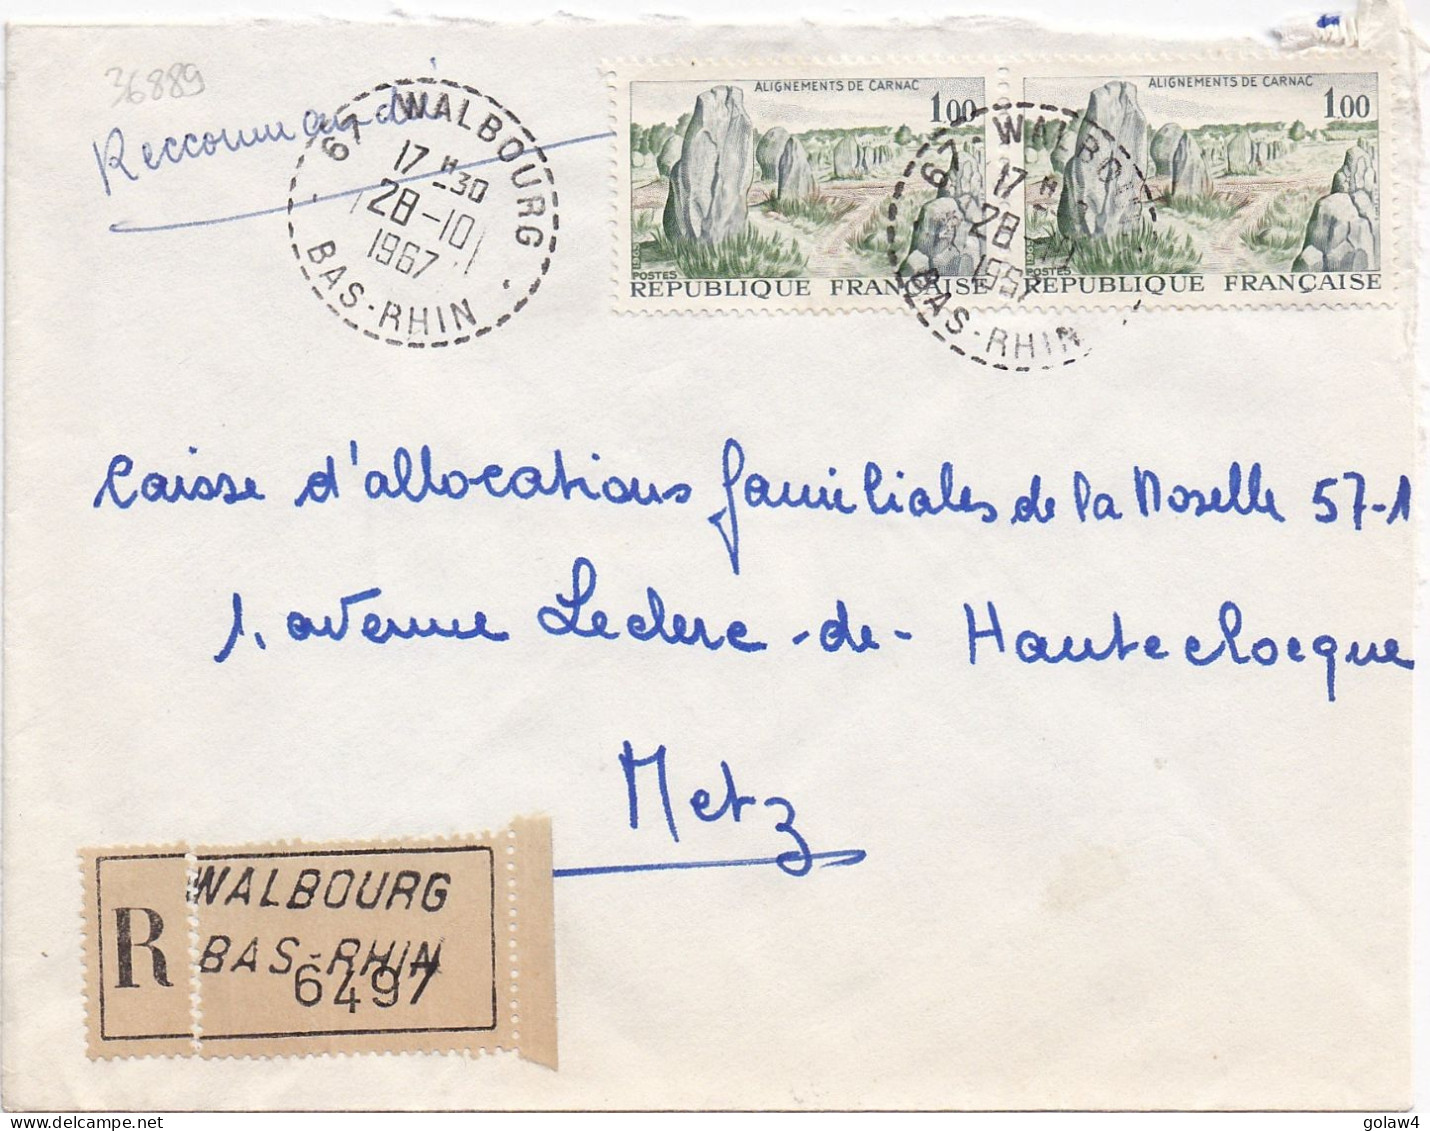 36889
Reccommandé
67 WALBOURG
17 H 30
28-10
1967
BAS-RHIN
ALIGNEMENTS DE CARNAC
1,00
1965
POSTES
RÉPUBLIQUE FRANÇAISE
ALIGNEMENTS DE CARNAC
1,00
1965
POSTES
RÉPUBLIQUE FRANÇAISE
67 WALBOURG
17 H
28 10
1967
BAS-RHIN
Caisse d'allocations familiales de la Moselle 57-1
1, avenue Leclerc-de-Hauteclocque
Metz
R
WALBOURG
BAS-RHIN
6497
golaw4